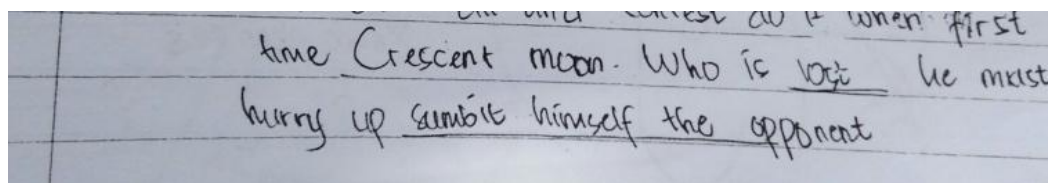 when first
time Crescent moon. Who is lost he must
hurry up sumbit himself the opponent